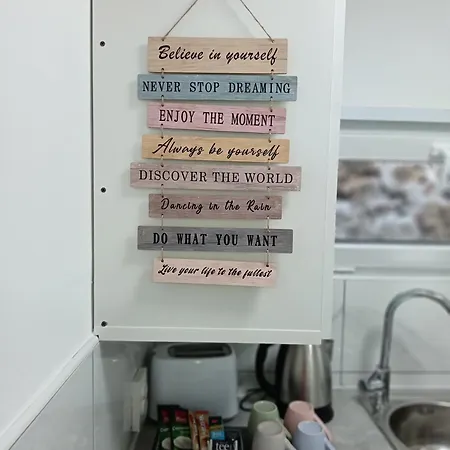 Believe in yourself
NEVER STOP DREAMING
ENJOY THE MOMENT
Always be yourself
DISCOVER THE WORLD
Dancing in the Rain
DO WHAT YOU WANT
Live your life to the fullest